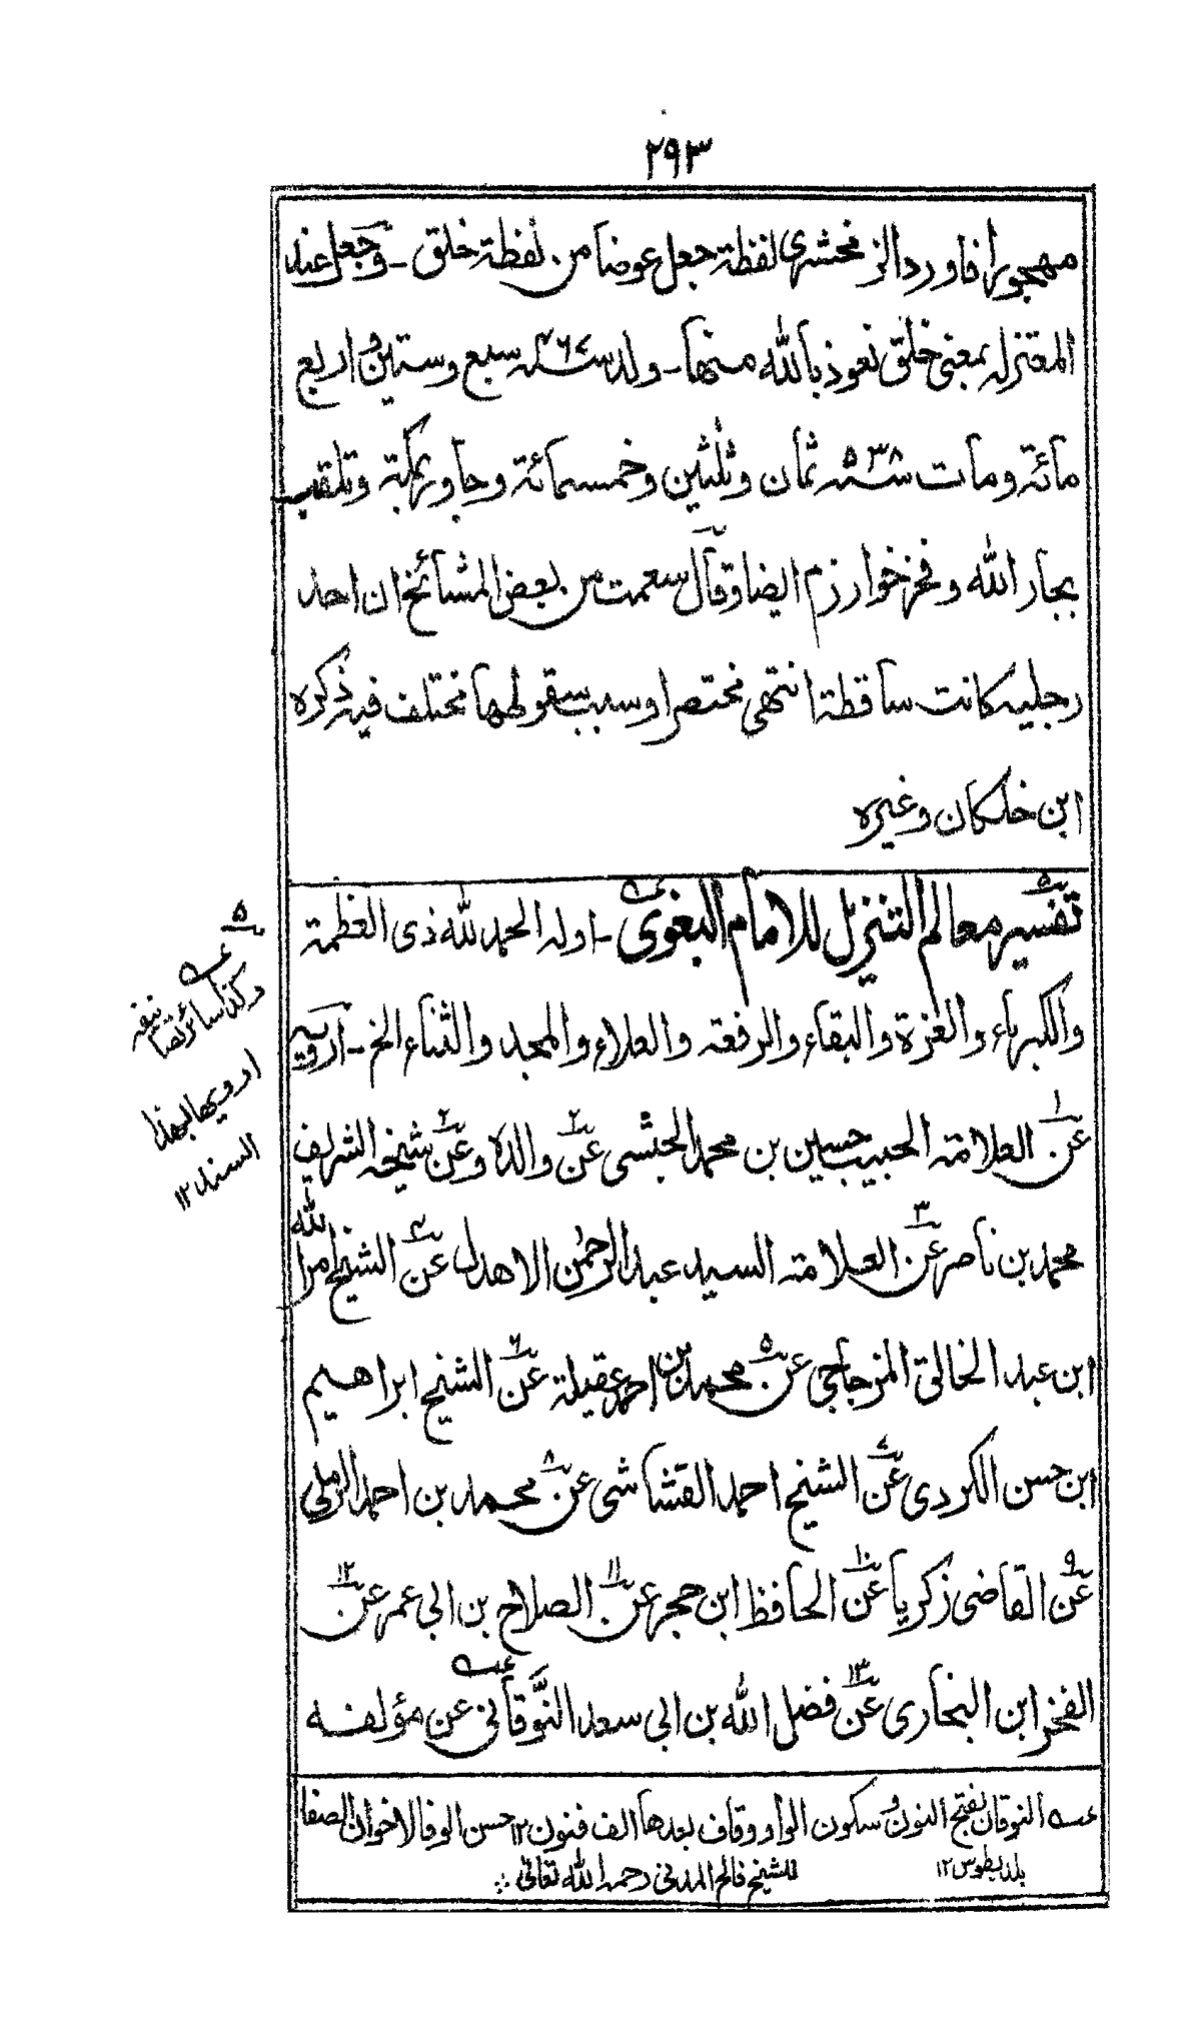 ٢٩٣
مهجورا فاورد الزمخشري لفظة جعل عوضا من لفظة خلق - وجعل عند
المعتزله بمعنى خلق نعوذ بالله منها - ولد سنة ٤٦٧ سبع وستين واربع
مائة ومات سنة ٥٣٨ ثمان وثلثين وخمسمائة وجاور بمكة وتلقب
بجار الله وفخر خوارزم ايضا وقال سمعت من بعض المشائخ ان احد
رجليه كانت ساقطة انتهى مختصرا وسبب سقوطها مختلف فيه ذكره
ابن خلكان وغيره
تفسير معالم التنزيل للامام البغوى - اوله الحمد لله ذى العظمة
والكبرياء والعزة والبقاء والرفعة والعلاء والمجد والثناء الخ - ارويه
عن١ العلامة الحبيب حسين بن محمد الحبشى عن٢ والده وعن٢ شيخه الشريف
محمد بن ناصر عن٣ العلامة السيد عبد الرحمن الاهدل عن٤ الشيخ امر الله
ابن عبد الخالق المزجاجي عن٥ محمد بن احمد عقيلة عن٦ الشيخ ابراهيم
ابن حسن الكردى عن٧ الشيخ احمد القشاشى عن٨ محمد بن احمد الرملي
عن٩ القاضى زكريا عن١٠ الحافظ ابن حجر عن١١ الصلاح بن ابي عمر عن١٢
الفخر ابن البخارى عن١٣ فضل الله بن ابي سعد النَّوقاني عن مؤلفه
عــه النوقان بفتح النون وسكون الواو وقاف بعدها الف فنون ١٢ حسن الوفا لاخوان الصفا
بلد بطوس ١٢ للشيخ فالح المدنى رحمه الله تعالى
٥
عــه
وكذا سائر تصانيفه
ارويها بهذا
السند ١٢